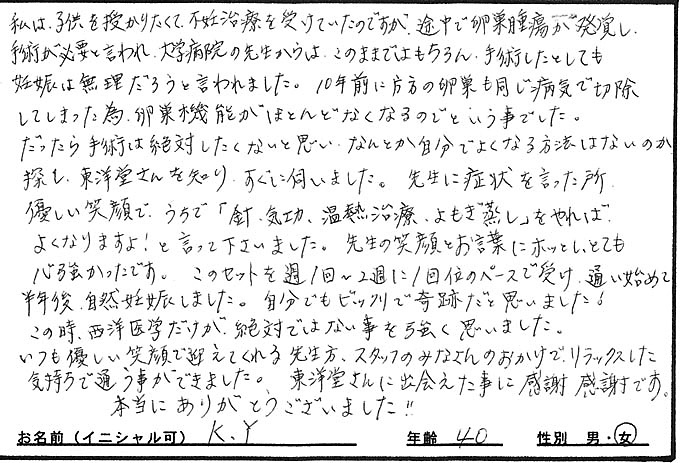 私は、子供を授かりたくて、不妊治療を受けていたのですが、途中で卵巣腫瘍が発覚し、
手術が必要と言われ、大学病院の先生からは、このままではもちろん、手術したとしても
妊娠は無理だろうと言われました。10年前に片方の卵巣も同じ病気で切除
してしまった為、卵巣機能がほとんどなくなるのでという事でした。
だったら手術は絶対したくないと思い、なんとか自分でよくなる方法はないのか
探し、東洋堂さんを知り、すぐに伺いました。先生に症状を言った所、
優しい笑顔で、うちで「針、気功、温熱治療、よもぎ蒸し」をやれば、
よくなりますよ!と言って下さいました。先生の笑顔とお言葉にホッとしとても
心強かったです。このセットを週1回~2週に1回位のペースで受け、通い始めて
半年後、自然妊娠しました。自分でもビックリで奇跡だと思いました!
この時、西洋医学だけが、絶対ではない事を強く思いました。
いつも優しい笑顔で迎えてくれる先生方、スタッフのみなさんのおかげで、リラックスした
気持ちで通う事ができました。東洋堂さんに出会えた事に感謝感謝です。
本当にありがとうございました!!
お名前(イニシャル可) K.Y 年齢 40 性別 男・女